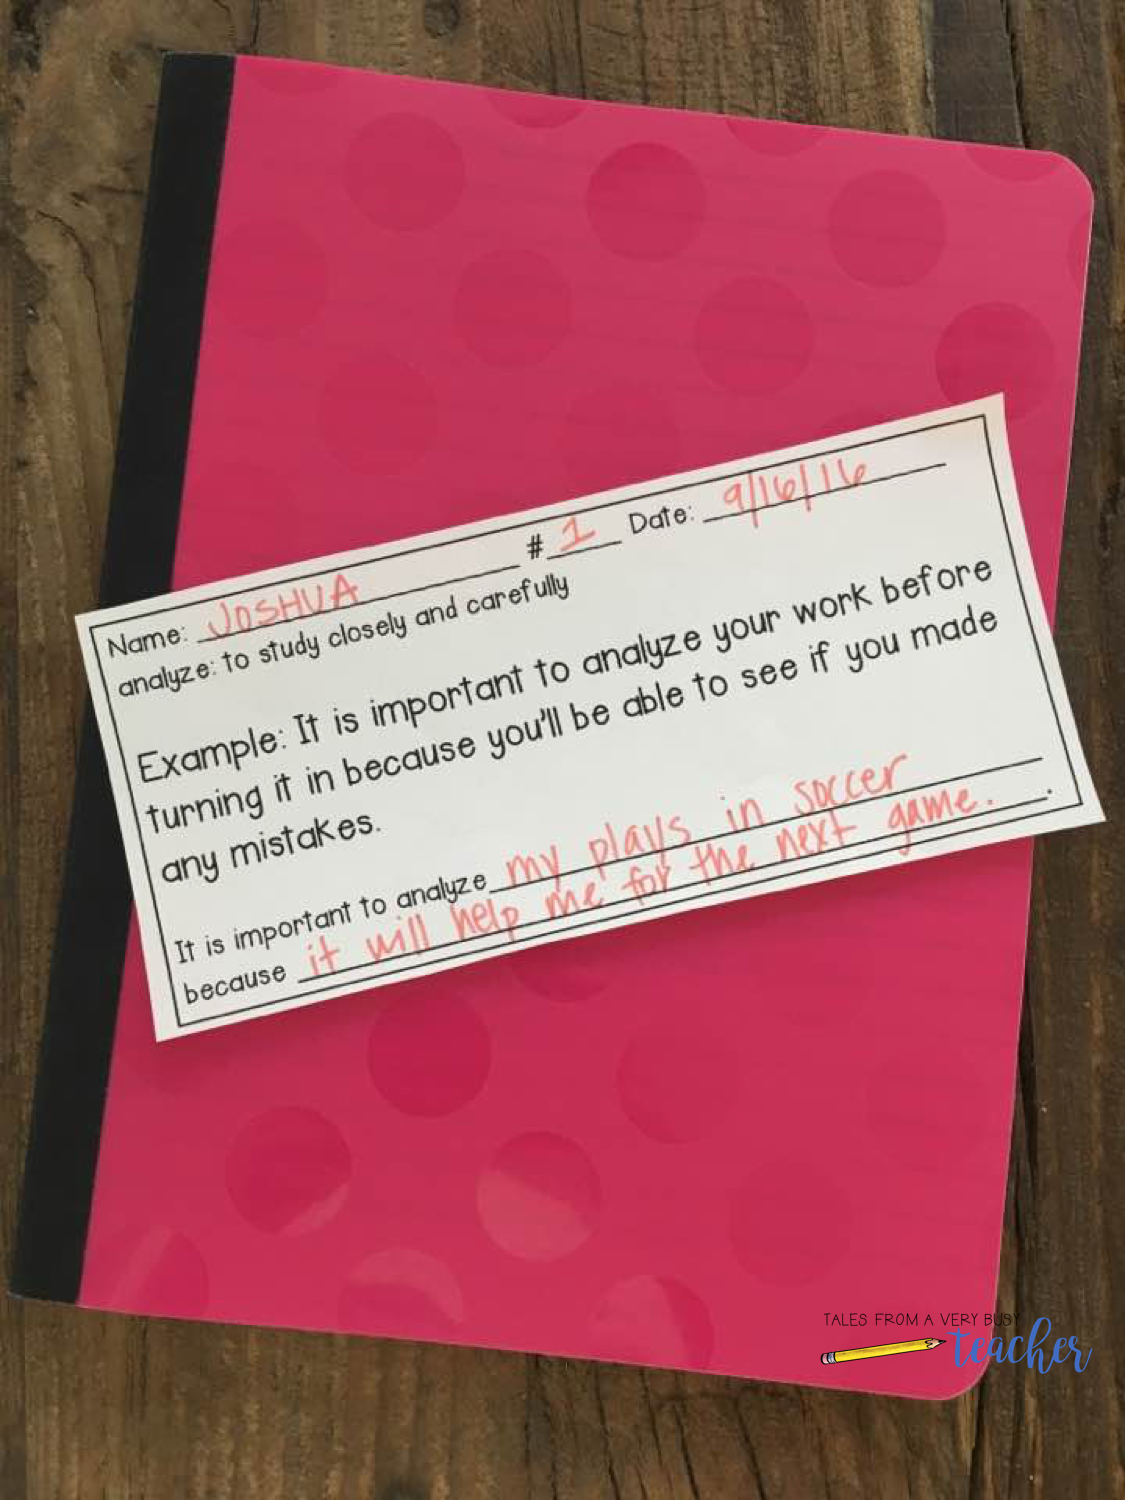 Name: JOSHUA # 1 Date: 9/16/16
analyze: to study closely and carefully
Example: It is important to analyze your work before
turning it in because you'll be able to see if you made
any mistakes.
It is important to analyze my plays in soccer
because it will help me for the next game. .
TALES FROM A VERY BUSY
teacher